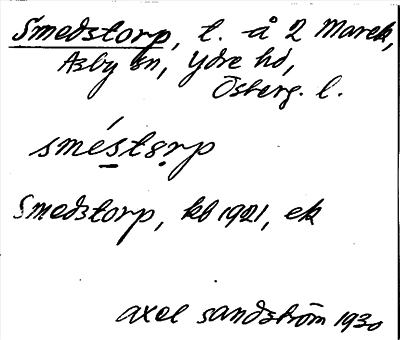 Smedstorp, t. å 2 Marek,
Asby sn, Ydre hd,
Österg. l.
sméstọrp
Smedstorp, kb 1921, ek
Axel Sandström 1930